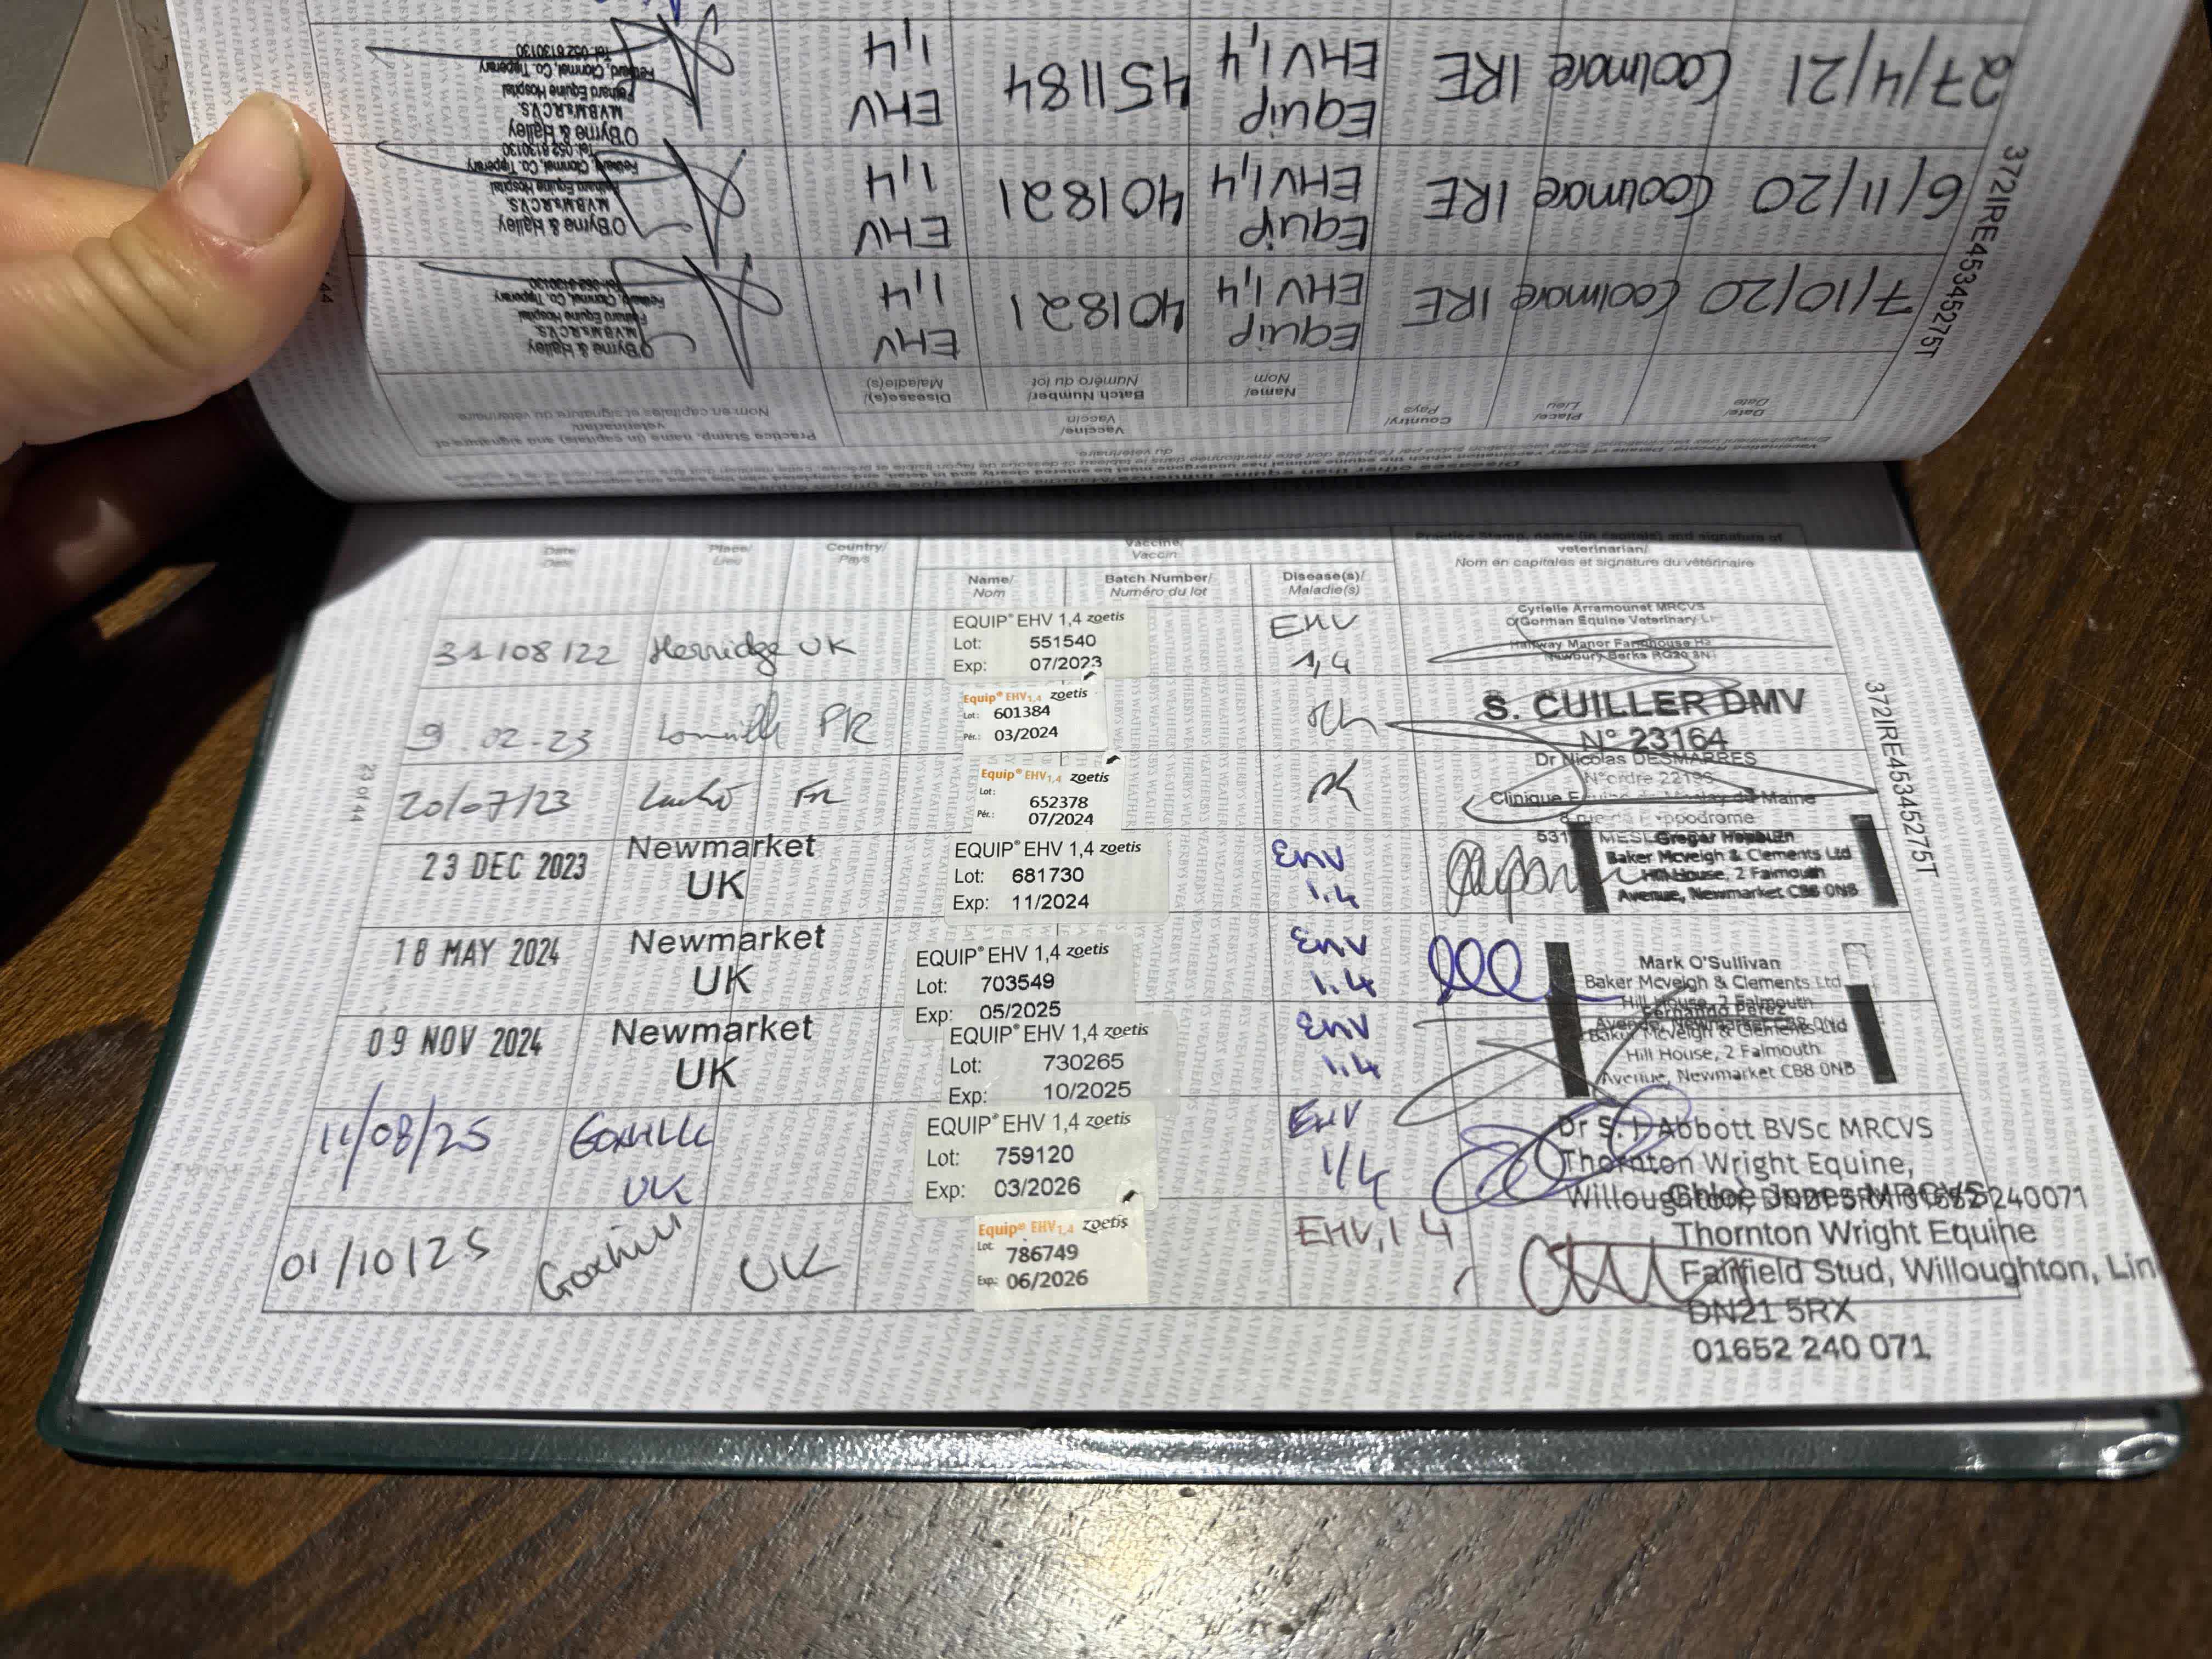 Diseases other than equine influenza/Maladies autres que la grippe équine
Vaccination Record: Details of every vaccination which the equine animal has undergone must be entered clearly and in detail, and completed with the name and signature of veterinarian.
du vétérinaire.
Date/
Date
Place/
Lieu
Country/
Pays
Vaccine/
Vaccin
Name/
Nom
Batch Number/
Numéro du lot
Disease(s)/
Maladie(s)
Practice Stamp, name (in capitals) and signature of
veterinarian/
Nom en capitales et signature du vétérinaire
7/10/20 Coolmore IRE Equip EHV 1,4 401821 EHV 1,4
O'Byrne & Halley
M.V.B.M.s.R.C.V.S.
Fethard Equine Hospital
Fethard, Clonmel, Co. Tipperary
Tel: 052 6130130
6/11/20 Coolmore IRE Equip EHV 1,4 401821 EHV 1,4
O'Byrne & Halley
M.V.B.M.s.R.C.V.S.
Fethard Equine Hospital
Fethard, Clonmel, Co. Tipperary
Tel: 052 6130130
27/4/21 Coolmore IRE Equip EHV 1,4 451184 EHV 1,4
O'Byrne & Halley
M.V.B.M.s.R.C.V.S.
Fethard Equine Hospital
Fethard, Clonmel, Co. Tipperary
Tel: 052 6130130
372IRE45345275T
44
Date/
Date
Place/
Lieu
Country/
Pays
Vaccine/
Vaccin
Name/
Nom
Batch Number/
Numéro du lot
Disease(s)/
Maladie(s)
Practice Stamp, name (in capitals) and signature of
veterinarian/
Nom en capitales et signature du vétérinaire
31/08/22 Herridge UK
EQUIP® EHV 1,4 zoetis
Lot: 551540
Exp: 07/2023
EHV
1,4
Cyrielle Arramounet MRCVS
O'Gorman Equine Veterinary
Halfway Manor Farmhouse
Newbury Berks RG20
9.02-23 FR
Equip® EHV1,4 zoetis
Lot: 601384
Pér.: 03/2024
S. CUILLER DMV
N° 23164
20/07/23 FR
Equip® EHV1,4 zoetis
Lot: 652378
Pér.: 07/2024
Dr Nicolas DESMARRES
N°ordre 22196
Clinique Equine de Meslay du Maine
8 rue de l'Hippodrome
531 MESL
23 DEC 2023 Newmarket
UK
EQUIP® EHV 1,4 zoetis
Lot: 681730
Exp: 11/2024
EHV
1.4
Gregor Hepburn
Baker Mcveigh & Clements Ltd
Hill House, 2 Falmouth
Avenue, Newmarket CB8 0NB
18 MAY 2024 Newmarket
UK
EQUIP® EHV 1,4 zoetis
Lot: 703549
Exp: 05/2025
EHV
1.4
Mark O'Sullivan
Baker Mcveigh & Clements Ltd
Hill House, 2 Falmouth
Avenue, Newmarket CB8 0NB
09 NOV 2024 Newmarket
UK
EQUIP® EHV 1,4 zoetis
Lot: 730265
Exp: 10/2025
EHV
1.4
Fernando Perez
Baker Mcveigh & Clements Ltd
Hill House, 2 Falmouth
Avenue, Newmarket CB8 0NB
11/08/25 Goxhill
UK
EQUIP® EHV 1,4 zoetis
Lot: 759120
Exp: 03/2026
EHV
1/4
Dr S. I Abbott BVSc MRCVS
Thornton Wright Equine,
Willoughton, DN21 5RX 01652 240071
01/10/25 Goxhill UK
Equip® EHV1,4 zoetis
Lot: 786749
Exp: 06/2026
EHV,1 4
Chloe Jones MRCVS
Thornton Wright Equine
Fairfield Stud, Willoughton, Lin
DN21 5RX
01652 240 071
23 of 44
372IRE45345275T